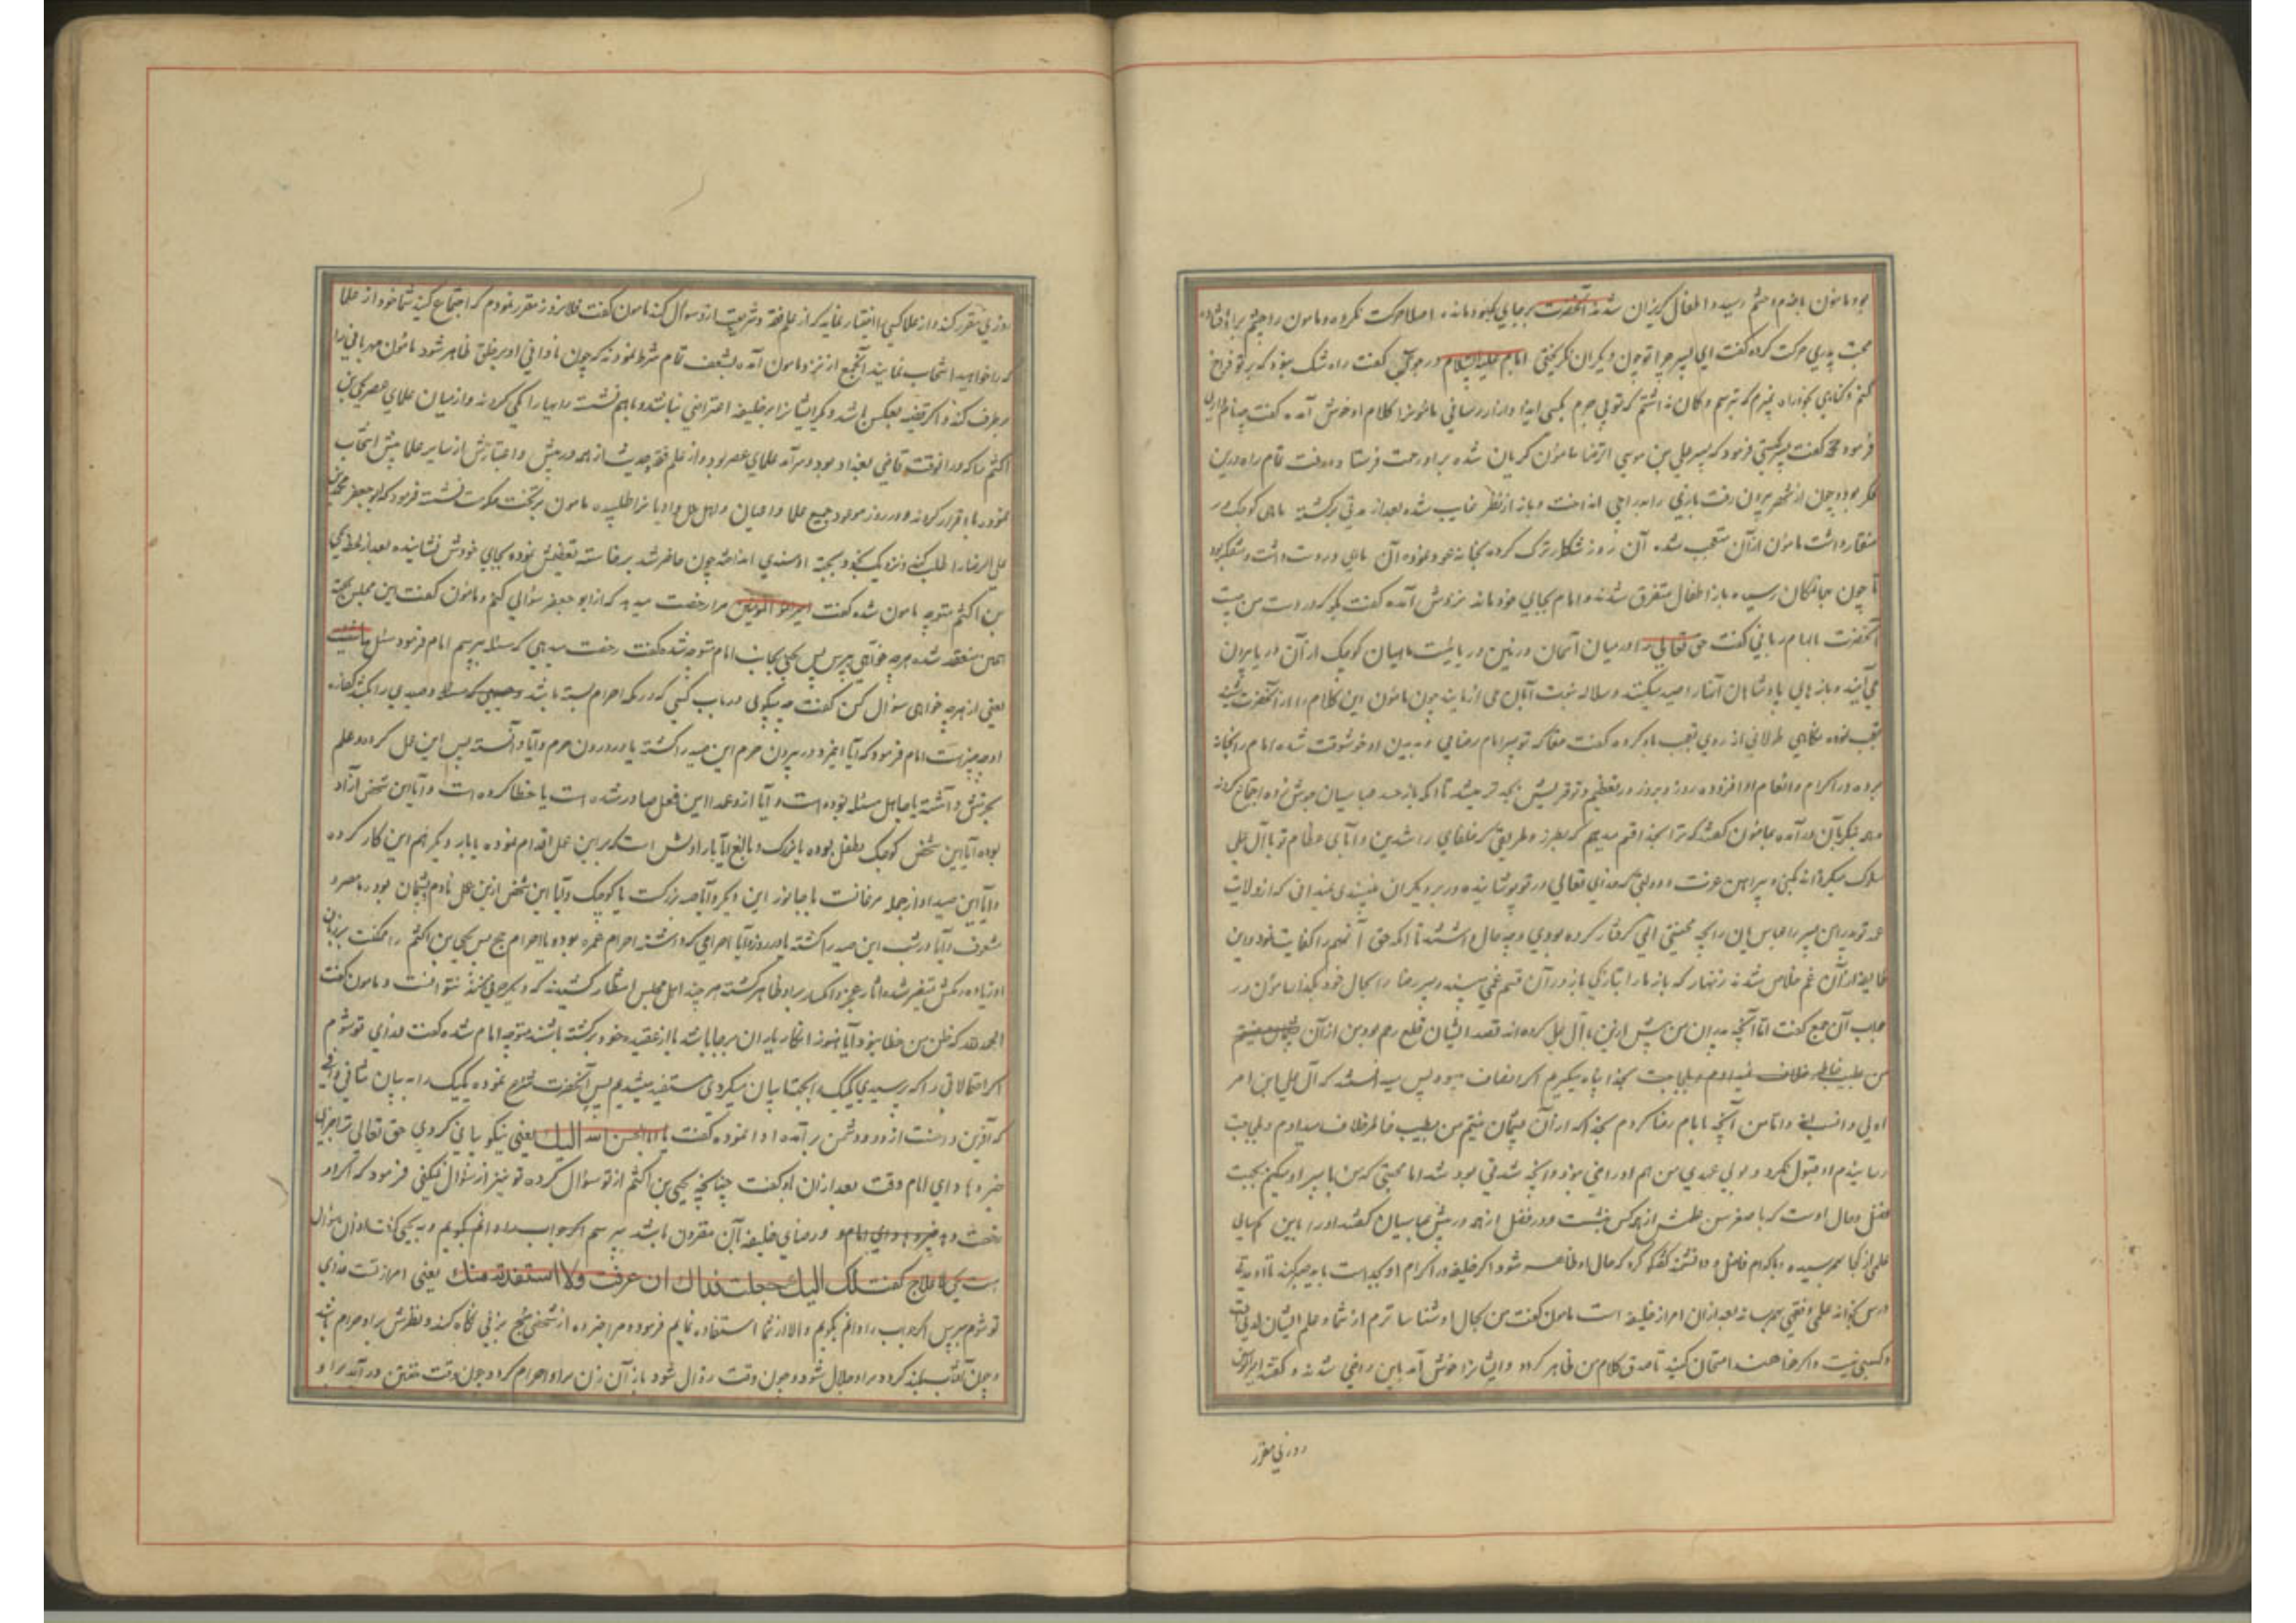 بود مامون باخدم و حشم رسید و اطفال گریزان شدند آنحضرت برجای خود مانده اصلا حرکت نکرده و مامون را چشم بر او افتاده
محبت پدری حرکت کرده گفت ای پسر چرا تو چون دیگران نگریختی امام علیه السلام در جواب گفت راه تنگ نبود که بر تو فراخ
کنم و گناهی نکرده‌ام که بترسم و گمان نداشتم که تو بی جرم بکسی ایذا و آزار رسانی مامونرا کلام او خوش آمده گفت چه نام داری
فرمود محمد گفت پسر کیستی فرمود که پسر علی بن موسی الرضا مامون گریان شده بر او رحمت فرستاد و رفت تمام راه درین
فکر بود و چون از شهر بیرون رفت بازی را بدراجی انداخت و باز از نظر غایب شده بعد از مدتی برگشته ماهی کوچک در
منقار داشت مامون از آن متعجب شد آن روز شکار ترک کرده بخانه عود نموده آن ماهی در دست داشت و متفکر بود
تا چون بهمان مکان رسید باز اطفال متفرق شدند و امام بجای خود ماند نزدش آمده گفت بگو که در دست من چیست
آنحضرت بالهام ربانی گفت حق تعالی را در میان آسمان و زمین دریائیست ماهیان کوچک از آن دریا بیرون
می‌آیند و بازهای پادشاهان آنها را صید میکنند و سلاله نبوت را بآن می‌آزمایند چون مامون این کلام را از آنحضرت شنید
تعجب نموده نگاهی طولانی از روی تعجب باو کرده گفت حقا که تو پسر امام رضایی و بدین او خوشوقت شده امام را بخانه
برده در اکرام و انعام او افزوده روز بروز در تعظیم و توقیرش بجدتر میشد تا آنکه باز حسد عباسیان بجوش زده اجتماع کردند
و همه بیکبار درآمده بمامون گفتند که ترا بخدا قسم میدهیم که بطرز و طریقی که خلفای راشدین و آبای عظام تو با آل علی
سلوک میکردند بکنی و پیراهن عزت و دولتی که خدای تعالی در تو پوشانیده در بر دیگران نپسندی
عهد تو پدر این پسر را عباسیان را بچه محنتی الی گرفتار کرده بودی و چه حال داشتند تا آنکه حق آن مهم را کفایت نمود و این
طایفه از آن غم خلاص شدند زنهار که باز ما را بتازگی باز در آن قسم غمی مپسند و پسر رضا را بحال خود بگذار مامون در
جواب آن جمع گفت اما آنچه پدران من پیش ازین با آل علی کرده‌اند قصد ایشان قطع رحم بود من از آن
من بطیب خاطر خلاف میدادم و بلجاجت بخدا پناه میگیرم اگر انصاف بود پس میدانستند که آل علی باین امر
اولی و انسب‌اند و اما من آنچه با امام رضا کردم بخدا که از آن پشیمان نیستم من بطیب خاطر خلافت میدادم و بلجاجت
رسانیدم او قبول نکرد و بولی عهدی من هم او راضی نبود و آنچه شدنی بود شد اما محبتی که من با پسر او میکنم بجهت
فضل و کمال اوست که با صغر سن علمش از همه کس بیشست و در فضل از همه در پیش عباسیان گفتند او را باین کم سالی
علم از کجا بهم رسیده و با کدام فاضل و دانشمند گفتگو کرد که حال او ظاهر شود اگر خلیفه در اکرام او بجد است باید صبر کند تا او مدتی
درس بخواند علمی و فقهی بهم رساند بعد از آن امر از خلیفه است مامون گفت من بحال او شناساترم از شما و علم ایشان لدنی است
و کسبی نیست و اگر خواهند امتحان کنید تا صدق کلام من ظاهر گردد و ایشانرا خوش آمد باین راضی شدند و گفتند امیرالمومنین
روزی مقرر
روزی مقرر کند و از علما کسی را اختیار نماید که از علم فقه و شریعت از و سوال کند مامون گفت فلان روز مقرر نمودم که اجتماع کنید شما خود از علما
که را خواهید انتخاب نمایید آنجمع از نزد مامون آمده بشعف تمام شرط نمودند که چون نادانی او بر خلق ظاهر شود مامون مهربانی را
برطرف کند و اگر قضیه بعکس باشد دیگر ایشانرا بر خلیفه اعتراضی نباشد و باهم نشسته رایها را یکی کردند و از میان علمای عصر یحیی بن
اکثم را که در آنوقت قاضی بغداد بود و سرآمد علمای عصر بود و از علم فقه و حدیث از همه در پیش و اعتبارش از سایر علما بیش انتخاب
نمودند با قرار کردند و در روز موعود جمیع علما و اعیان و اهل حل و او یانرا طلبیده مامون بر تخت حکومت نشست فرمود که ابو جعفر محمد بن
علی الرضا را طلب کنند و نزدیک بخود بجهة او مسندی انداخته چون حاضر شد برخاسته تعظیمش نموده بجای خودش نشانیده بعد از لحظه یحیی
بن اکثم متوجه مامون شده گفت امیر المومنین مرا رخصت میدهد که از ابو جعفر سؤالی کنم و مامون گفت این مجلس بجهة
همین منعقد شده هرچه خواهی بپرس پس یحیی بجانب امام متوجه شد و گفت رخصت میدهی که مسئله بپرسم امام فرمود سئل ما شئت
یعنی از هرچه خواهی سؤال کن گفت چه میگوئی در باب کسی که در مکه احرام بسته باشد و صیدی را بکشد کفاره
او چه چیز است امام فرمود که آیا این مرد در بیرون حرم این صید را کشته یا در درون حرم و آیا دانسته پس این عمل کرده و علم
بحرمتش داشته یا جاهل مسئله بوده است و آیا از و عمدا این فعل صادر شده است یا خطا کرده است و آیا این شخص آزاد
بوده آیا این شخص کوچک و طفل بوده یا بزرگ و بالغ آیا بار اولش است که بر این عمل اقدام نموده یا بار دیگر هم این کار کرده
و آیا این صید او از جمله مرغانست یا جانور این دیگر و آیا صید بزرگست یا کوچک و آیا این شخص ازین عمل نادم و پشیمان بود یا مصر و
مشعوف و آیا در شب این صید را کشته یا در روز و آیا احرامی که داشته احرام عمره بوده یا احرام حج پس یحیی بن اکثم را لکنت بر زبان
او زیاده رنگش متغیر شده آثار عجز و انکسار بر او ظاهر گشته هرچند اهل مجلس انتظار کشیدند که دیگر حرفی بزند نتوانست و مامون گفت
الحمد لله که ظن من خطا نبود آیا هنوز انکار یاران برجا باشد یا از عقیده خود برگشته باشند متوجه امام شده گفت فدای تو شوم
اگر احتمالاتی را که پرسیدی یک یک بجهة ما بیان میکردی مستفید میشدیم پس آنحضرت شروع نموده یک یک را به بیان شافی وافی
که آفرین و احسنت از دور و دشمن برآمده ادا نموده گفت یا ابا الحسن احسن الله الیک یعنی نیکو بیانی کردی حق تعالی ترا جزای
خیر دهاد ای امام وقت بعد از آن او گفت چنانچه یحیی بن اکثم از تو سؤال کرده تو نیز از سؤال نمیکنی فرمود که اگر او
رخصت دهد و رضای خلیفه بآن مقرون باشد بپرسم اگر جواب را دانم بگویم
یحیی لا علاج گفت لک الیک جعلت فداک ان عرفت و لا استفدته منک یعنی امر از تست فدای
تو شوم بپرس اگر جواب را دانم بگویم والا از شما استفاده نمایم فرمود مرا خبر ده از شخصی که صبح بزنی نگاه کند و نظرش بر او حرام باشد
و چون آفتاب بلند گردد بر او حلال شود و چون وقت زوال شود باز آن زن بر او حرام گردد چون وقت پیشین درآید بر او